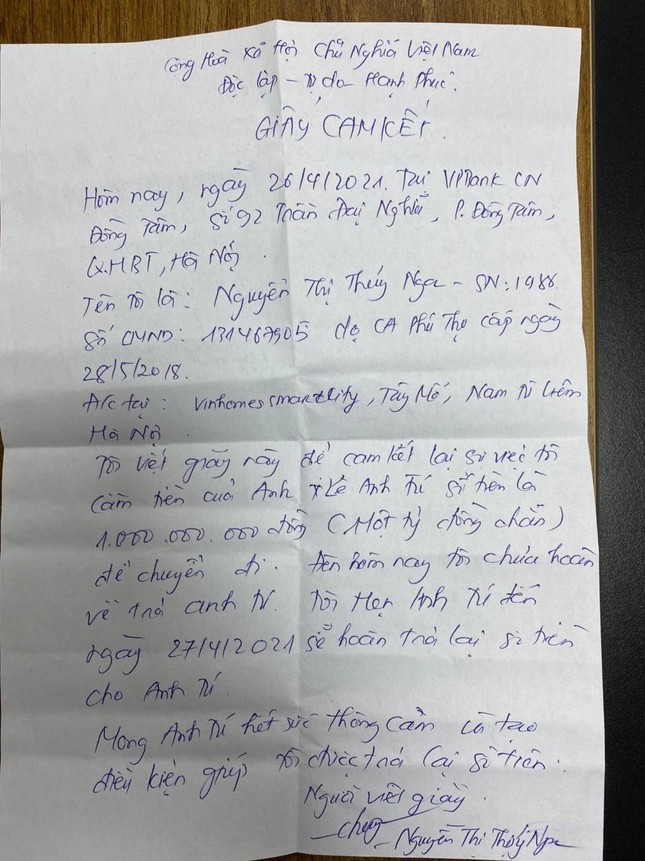 Cộng Hoà Xã Hội Chủ Nghĩa Việt Nam
Độc lập - Tự do Hạnh Phúc.
GIẤY CAM KẾT.
Hôm nay, ngày 26/4/2021. Tại VPBank CN
Đồng Tâm, số 92 Trần Đại Nghĩa, P. Đồng Tâm,
Q.HBT, Hà Nội.
Tên tôi là: Nguyễn Thị Thúy Nga - SN: 1986.
Số CMND: 131467905 do CA Phú Thọ cấp ngày
28/5/2018.
Đ/c tại: Vinhomes smartcity, Tây Mỗ, Nam Từ Liêm
Hà Nội.
Tôi viết giấy này để cam kết lại sự việc tôi
cầm tiền của Anh Lê Anh Tú số tiền là
1.000.000.000 đồng (Một tỷ đồng chẵn)
để chuyển đi. Đến hôm nay tôi chưa hoàn
về trả anh Tú. Tôi Hẹn Anh Tú đến
ngày 27/4/2021 sẽ hoàn trả lại số tiền
cho Anh Tú.
Mong Anh Tú hết sức thông cảm và tạo
điều kiện giúp tôi được trả lại số tiền.
Người viết giấy
Nguyễn Thị Thúy Nga